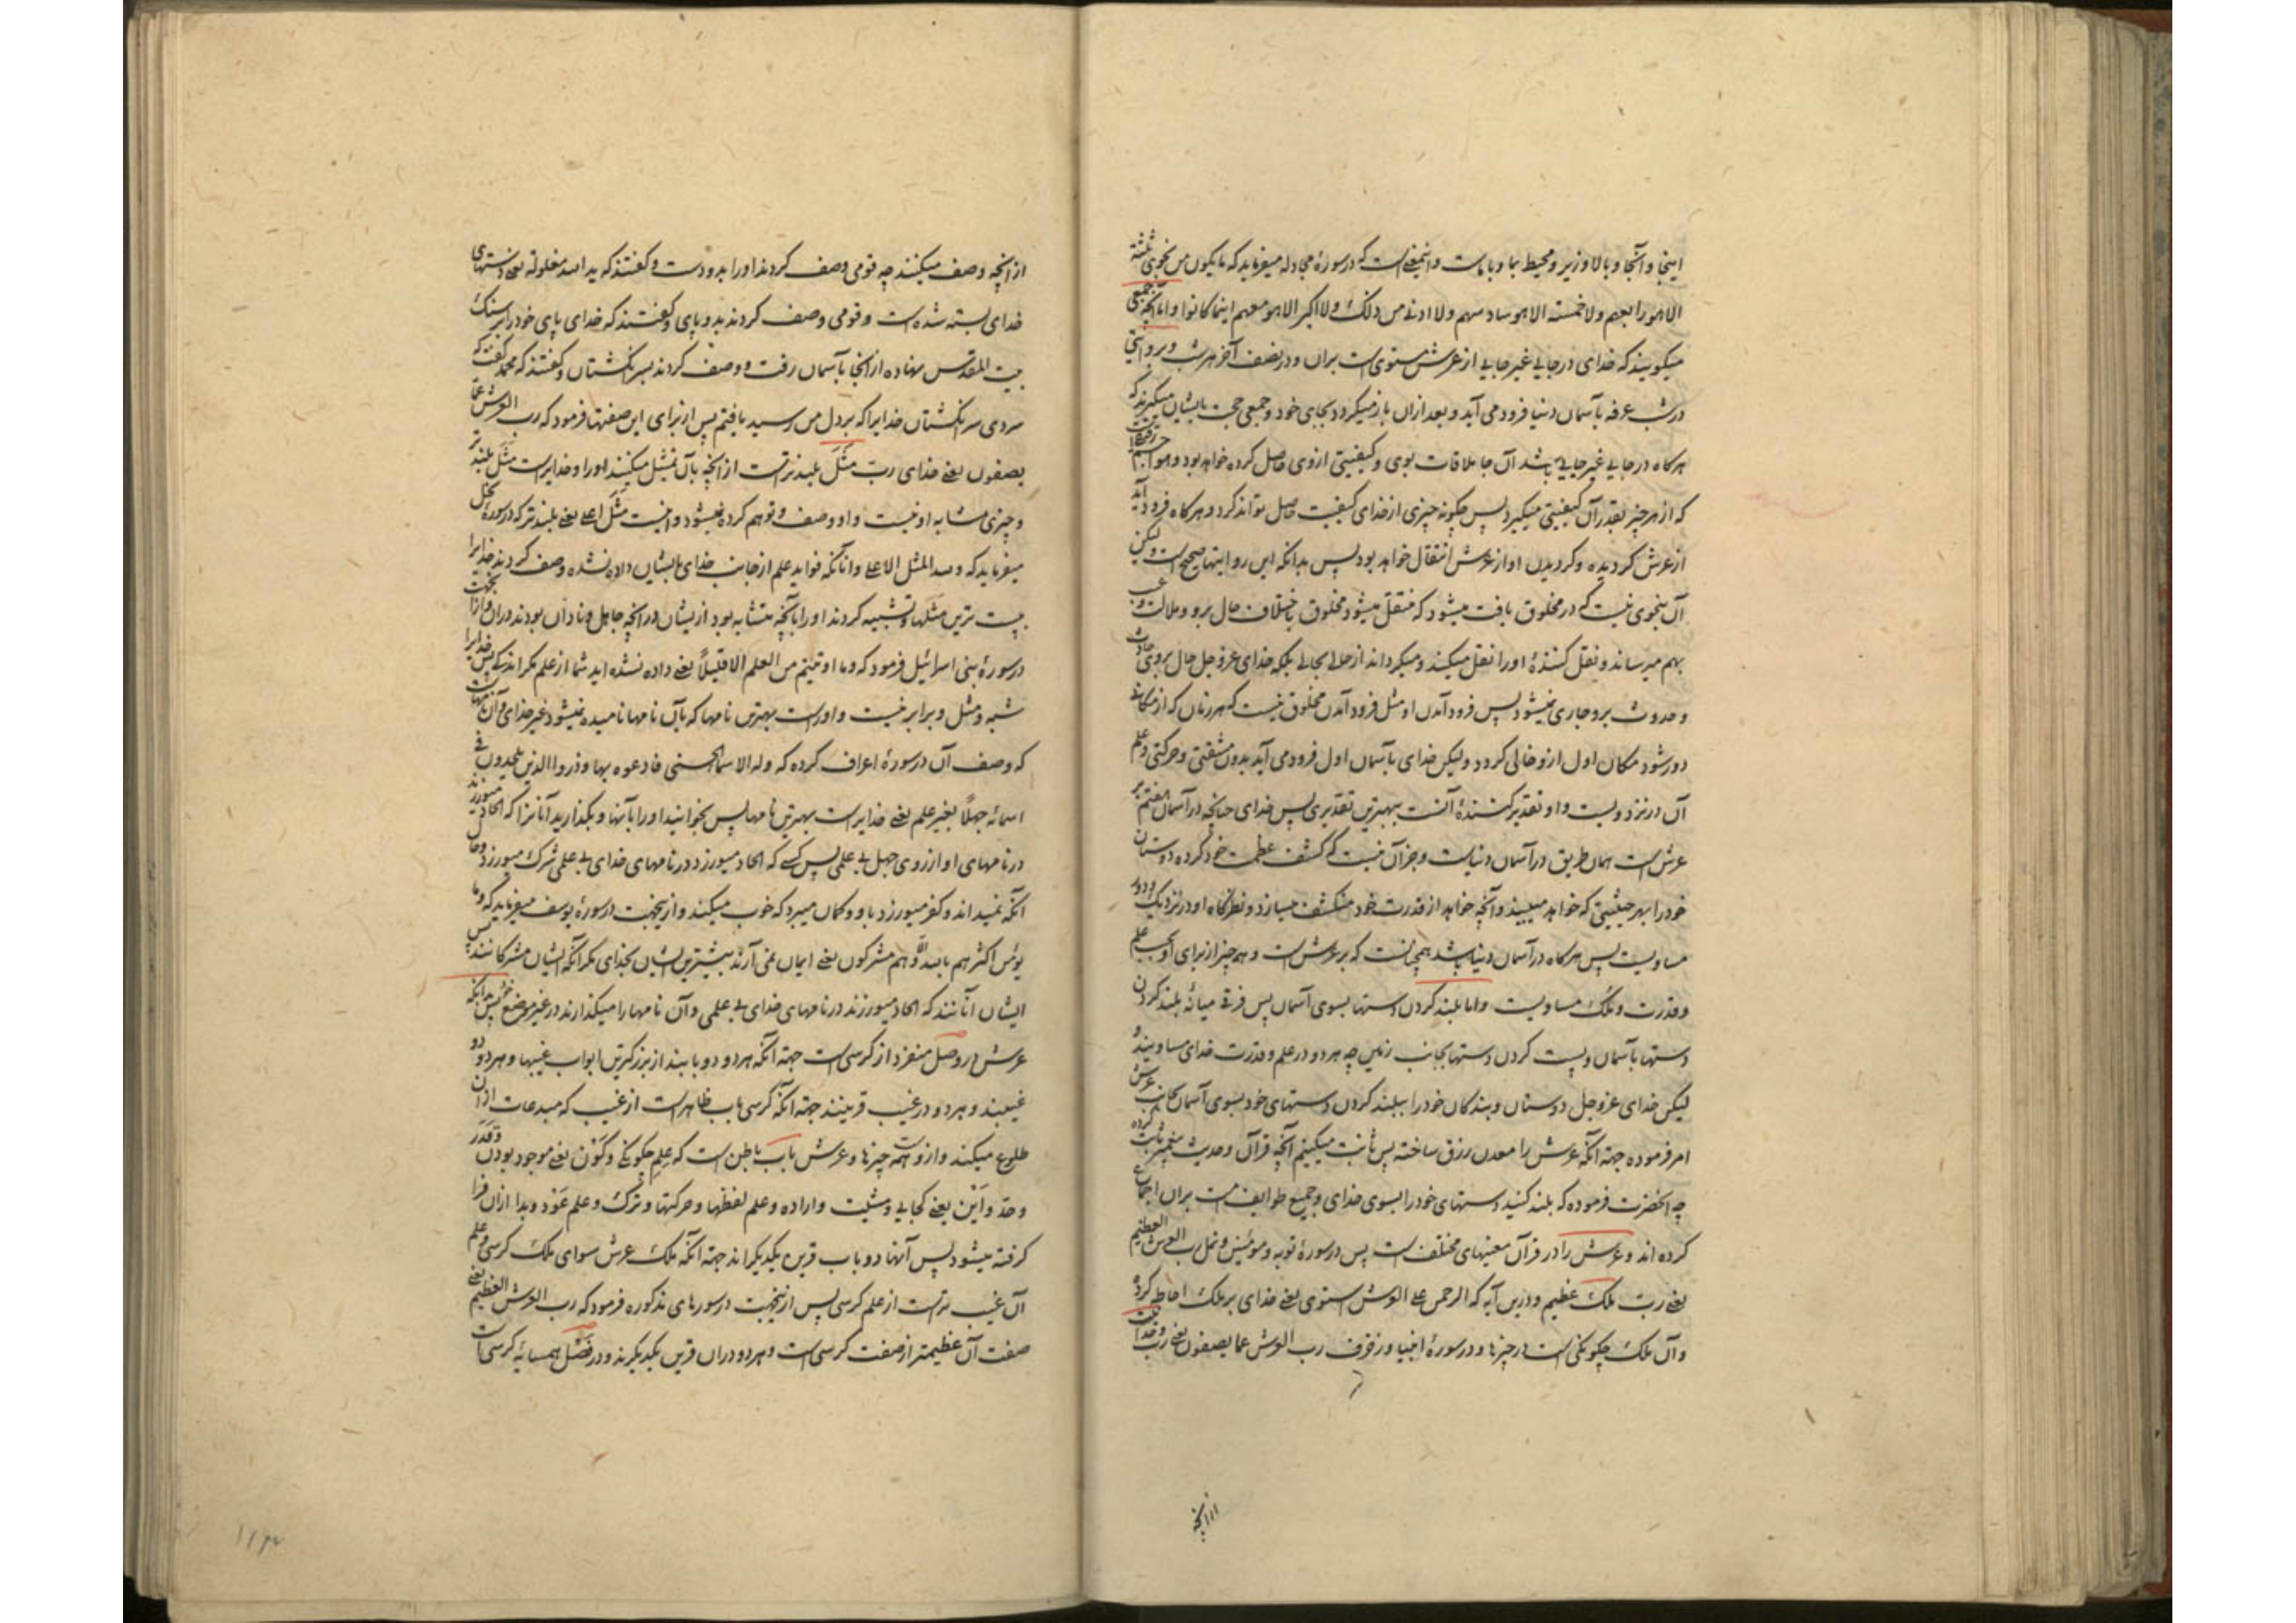 اینجا و آنجا و بالا و زیر و محیط بما و با ماست و اینمعنی است که در سورهٔ مجادله میفرماید که ما یکون من نجوی ثلثة
الا هو رابعهم ولا خمسة الا هو سادسهم ولا ادنی من ذلک ولا اکثر الا هو معهم اینما کانوا و اما آنچه جمعی
میکویند که خدای در جایی غیر جایی از عرش مستوی است بران و در نصف آخر هر شب و بروایتی
در شب عرفه بآسمان دنیا فرود می آید و بعد ازان باز میکردد بجای خود و جمعی حجت بایشان میکیرند که
هرکاه در جایی غیر جایی باشد آن جا ملاقات بوی و کیفیتی از وی حاصل کرده خواهد بود و هوا جسم رقیق است
که از هر چیز بقدر آن کیفیتی میکیرد پس چکونه چیزی از خدای کیفیت حاصل تواند کرد و هرکاه فرود آید
از عرش کردیده و کردیدن او از عرش انتقال خواهد بود پس بدانکه این روایتها صحیح است ولیکن
آن بنحوی نیست که در مخلوق یافت میشود که منتقل میشود مخلوق باختلاف حال برو و ملالت و تعب
بهم میرساند و نقل کنندهٔ او را نقل میکند و میکرداند از حالی بحالی بلکه خدای عز و جل حال بروی حادث
و حدوث برو جاری نمیشود پس فرود آمدن او مثل فرود آمدن مخلوق نیست که هر زمان که از مکانی
دور شود مکان اول ازو خالی کردد ولیکن خدای بآسمان اول فرود می آید بدون مشقتی و حرکتی و علم
آن در نزد ویست و او تقدیر کنندهٔ آنست ببهترین تقدیری پس خدای چنانچه در آسمان هفتم بر
عرش است همان طریق در آسمان دنیاست و جز آن نیست که کشف عظمت خود کرده دوستان
خود را بهر حیثیتی که خواهد میبیند و آنچه خواهد از قدرت خود منکشف میسازد و نظرکاه او در نزدیک و دور
مساویست پس هرکاه در آسمان دنیا باشد همچنانست که بر عرش است و همه چیز از برای او بحسب علم
و قدرت و ملک مساویست و اما بلند کردن دستها بسوی آسمان پس فرقی میانهٔ بلند کردن
دستها بآسمان و پست کردن دستها بجانب زمین چه هر دو در علم و قدرت خدای مساویند و
لیکن خدای عز و جل دوستان و بندکان خود را ببلند کردن دستهای خود بسوی آسمان بجانب عرش
امر فرموده جهة آنکه عرش را معدن رزق ساخته پس ثابت میکنیم آنچه قرآن و حدیث پیغمبر ثابت کرده
چه آنحضرت فرموده که بلند کنید دستهای خود را بسوی خدای و جمیع طوایف امت بران اجماع
کرده اند و عرش را در قرآن معنیهای مختلف است پس در سورهٔ توبه و مؤمنین و نمل رب العرش العظیم
یعنی رب ملک عظیم و درین آیه که الرحمن علی العرش استوی یعنی خدای بر ملک احاطه کرده
و آن ملک چکونکی است در چیزها و در سورهٔ انبیا و زخرف رب العرش عما یصفون یعنی رب
از آنچه
از آنچه وصف میکنند چه قومی وصف کردند او را بدو دست و کفتند که ید الله مغلولة یعنی دستهای
خدای بسته شده است و قومی وصف کردند بدو پای و کفتند که خدای پای خود را بر سنک
بیت المقدس نهاده از آنجا بآسمان رفت و وصف کردند بسر انکشتان و کفتند که محمد کفته که
سردی سر انکشتان خدایرا که بر دل من رسید یافتم پس از برای این صفتها فرمود که رب العرش عما
یصفون یعنی خدای رب مثل بلندتر است از آنچه بآن تمثیل میکنند او را و خدایراست مثل بلندتر
و چیزی مشابه او نیست و او وصف و توهم کرده نمیشود و اینست مثل اعلی یعنی بلندتر که در سورهٔ نحل
میفرماید که ولله المثل الاعلی و آنانکه فواید علم از جانب خدای بایشان داده نشده وصف کردند خدایرا
پست ترین مثلها و تشبیه کردند او را بآنچه متشابه بود از یشان در آنچه جاهل و نادان بودند دران و ازینجهت
در سورهٔ بنی اسرائیل فرمود که وما اوتیتم من العلم الا قلیلا یعنی داده نشده اید شما از علم مکر اندکی پس خدایرا
شبه و مثل و برابر نیست و اوراست بهترین نامها که بآن نامها نامیده نمیشود غیر خدای و آن نامهاست
که وصف آن در سورهٔ اعراف کرده که وله الاسماء الحسنی فادعوه بها وذروا الذین یلحدون فی
اسمائه جهلا بغیر علم یعنی خدایراست بهترین نامها پس بخوانید او را بآنها و بکذارید آنانرا که الحاد میورزند
در نامهای او از روی جهل بی علمی پس کسی که الحاد میورزد در نامهای خدای بی علمی شرک میورزد و حال
آنکه نمیداند و کفر میورزد باو و کمان میبرد که خوب میکند و ازینجهت در سورهٔ یوسف میفرماید که وما
یؤمن اکثرهم بالله الا وهم مشرکون یعنی ایمان نمی آرند بیشترین ایشان بخدای مکر آنکه ایشان مشرکانند پس
ایشان آنانند که الحاد میورزند در نامهای خدای بی علمی و آن نامها را میکذارند در غیر موضع خود پس بدانکه
عرش در وصل منفرد از کرسی است جهة آنکه هر دو دو بابند از بزرکترین ابواب غیبها و هر دو
غیبند و هر دو در غیب قرینند جهة آنکه کرسی باب ظاهر است از غیب که مبدعات از آن
طلوع میکند و ازوست همه چیزها و عرش باب باطن است که علم چکونکی و کون یعنی موجود بودن و قدر
و حد و این یعنی کجایی و مشیت و اراده و علم لفظها و حرکتها و ترک و علم عود و بدا ازان فرا
کرفته میشود پس آنها دو باب قرین یکدیکراند جهة آنکه ملک عرش سوای ملک کرسی و علم
آن غیب تر است از علم کرسی پس ازینجهت در سورهای مذکوره فرمود که رب العرش العظیم یعنی
صفت آن عظیمتر از صفت کرسی است و هر دو دران قرین یکدیکرند و در فضل همسایهٔ کرسی است